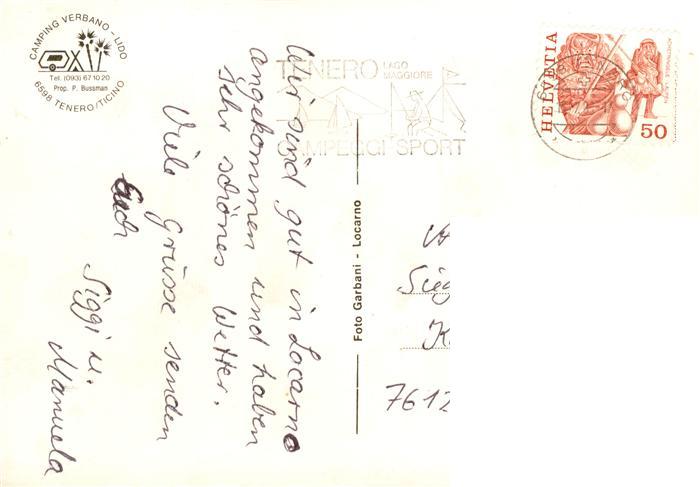 CAMPING VERBANO - LIDO
Tel. (093) 67 10 20
Prop. P. Bussman
6598 TENERO/TICINO
TENERO LAGO MAGGIORE
CAMPEGGI SPORT
HELVETIA
50
Wir sind gut in Locarno
angekommen und haben
sehr schönes Wetter.
Viele Grüsse senden
Euch
Siggi u.
Manuela
Foto Garbani - Locarno
Sieg
K
7612